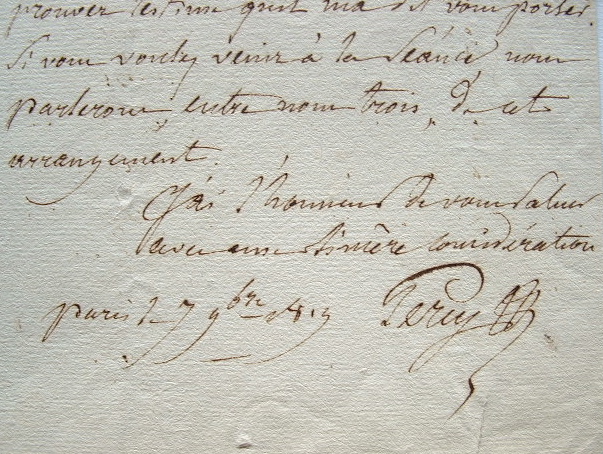 prouver l'estime qu'il m'a dit vous porter.
Si vous voulez venir à la Séance nous
parlerons entre nous trois, de cet
arrangement.
J'ai l'honneur de vous saluer
avec une sincère considération
paris le 7 9bre 1813
Percy